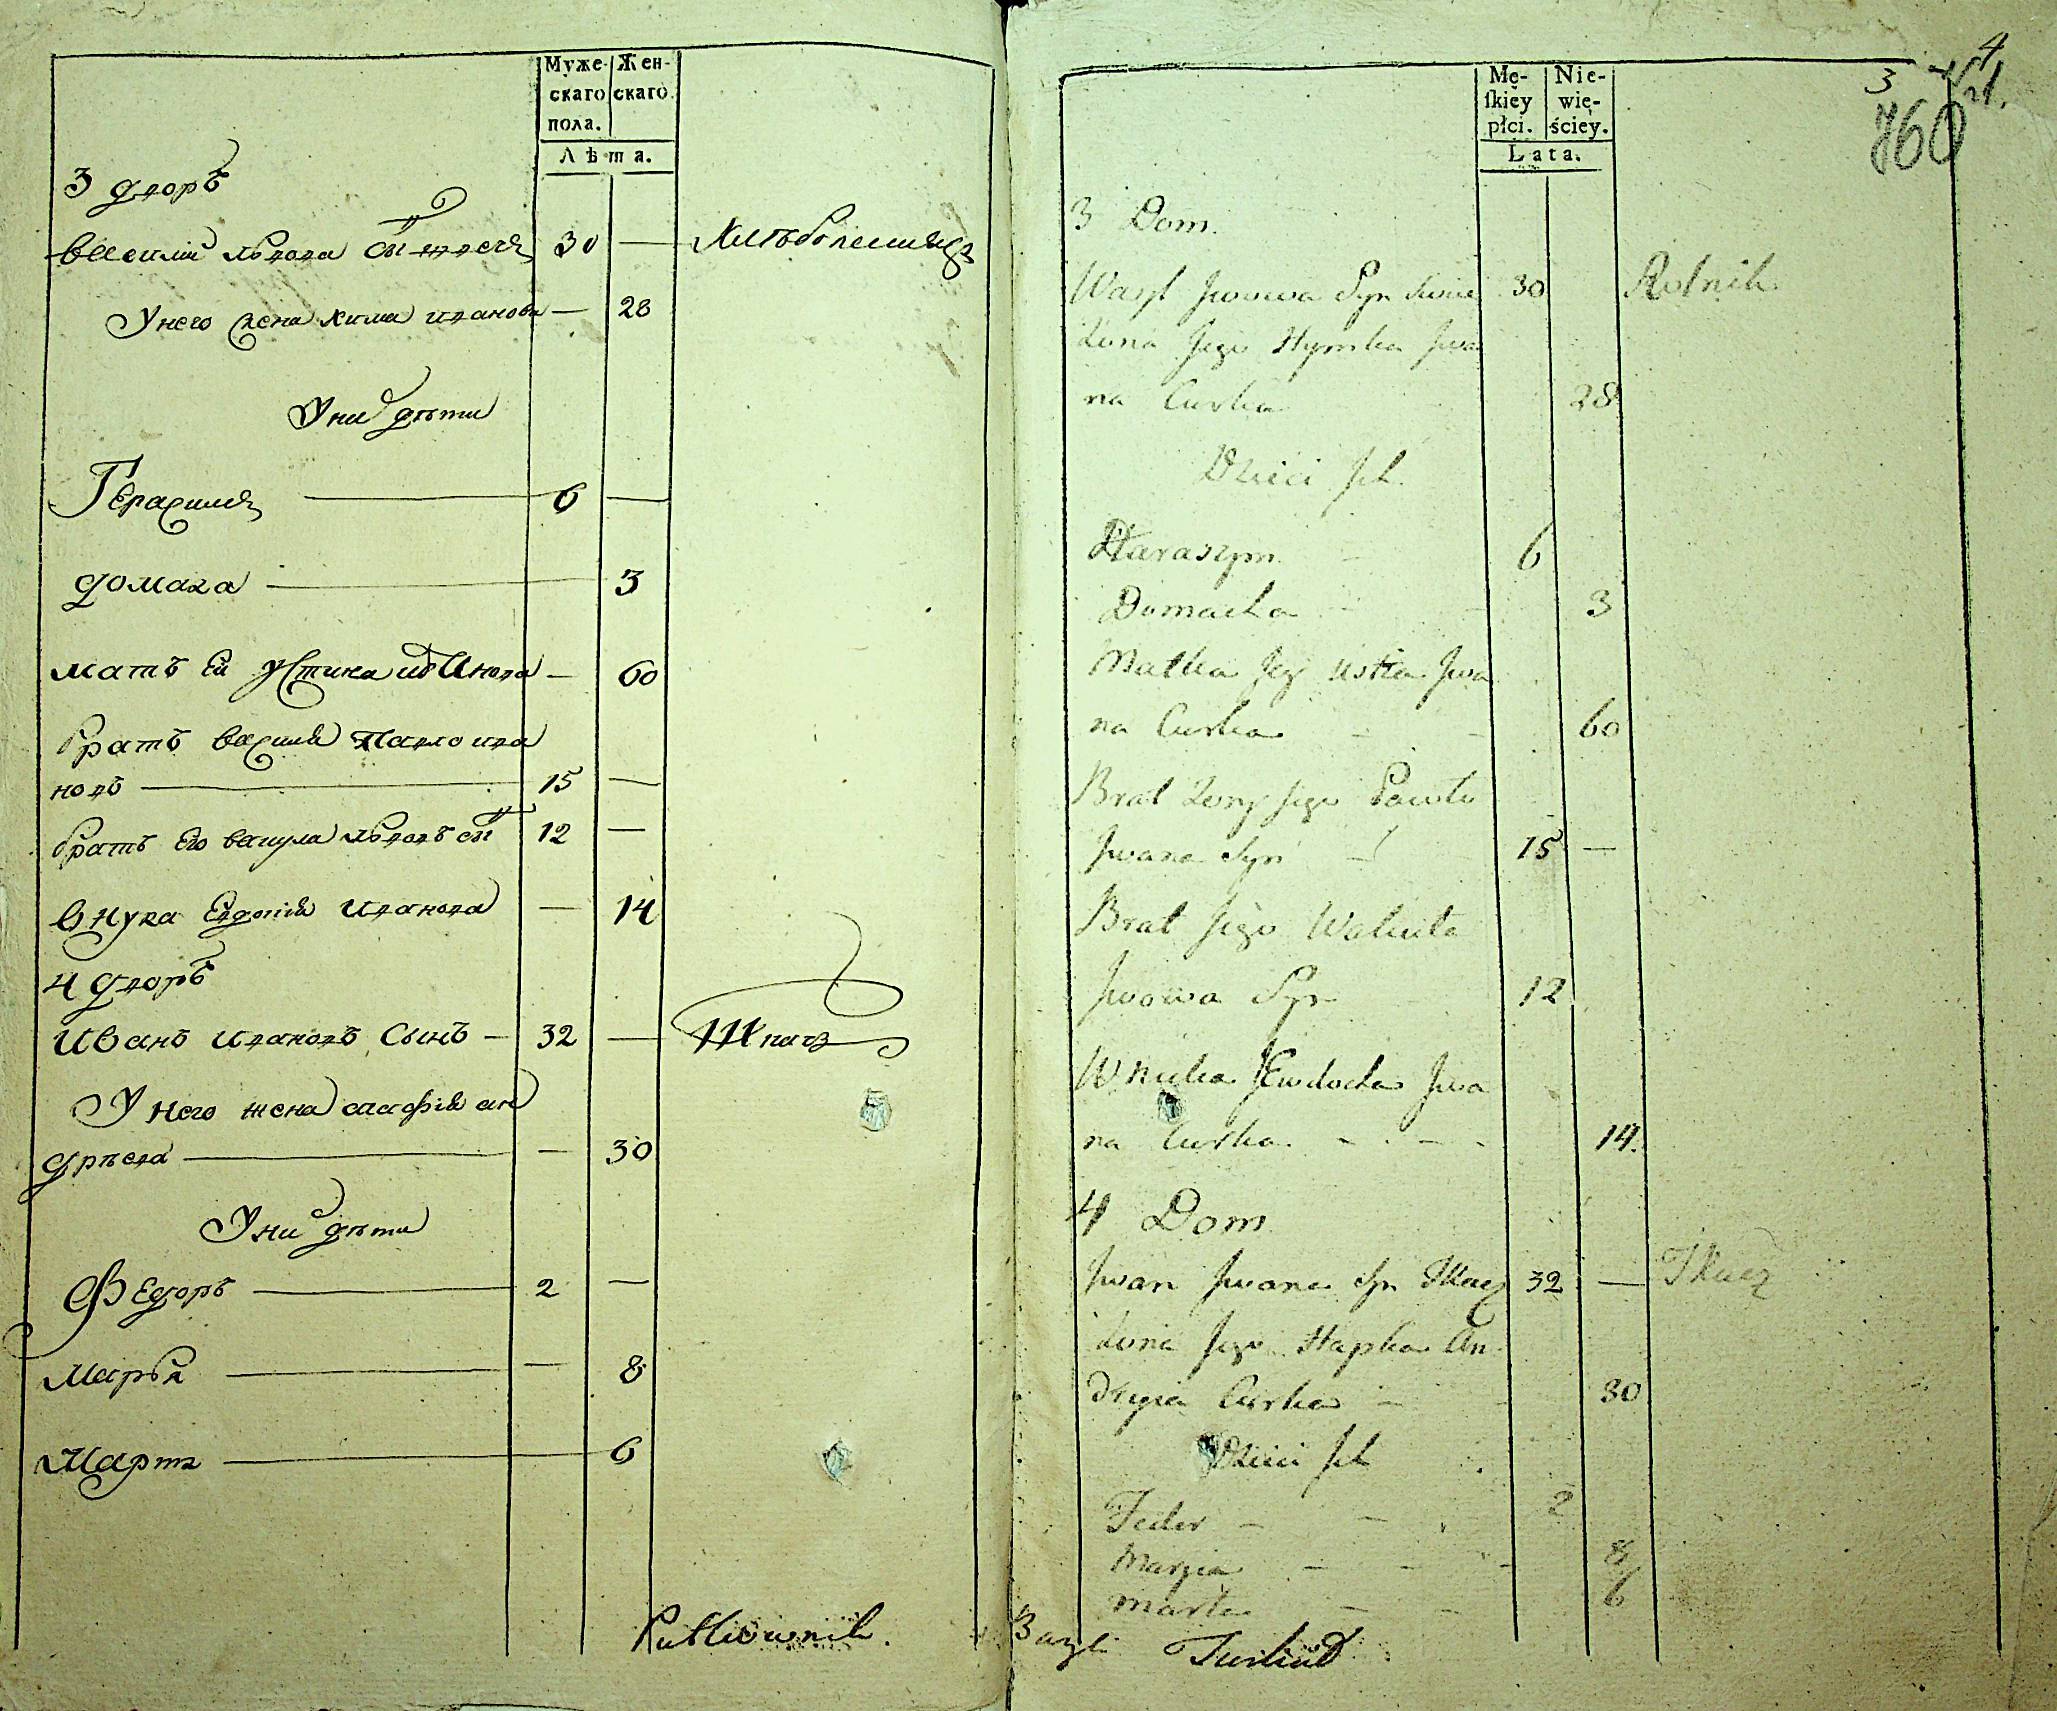 Муже-
скаго
пола.
Жен-
скаго
Лѣта.
3 дворъ
Василий Львова сынъ 30 —
У него жена Хима Иванова — 28
У ни дѣти
Герасимъ 6 —
домаха 3
мать Ей Устина — 60
братъ василия Павло ива
новъ 15 —
братъ Его вакула Львовъ сынъ 12 —
Внука Евдокия Иванова — 14
4 дворъ
Иванъ Ивановъ Сынъ — 32 — Ткачъ
У него жена агафия ан
дрѣева — 30
У ни дѣти
Федоръ 2 —
Марья — 8
Марта 6
Pułkownik
3
4
21.
760
Mę-
ſkiey
płci.
Nie-
wie-
ściey.
Lata.
3 Dom
Wasyl Jwowa Syn 30 Rolnik
Żona Jego Hymka Jwa
na Curka 28
Dzieci Jch
Haraszym 6
Domacha 3
Matka Jeg Ustia Jwa
na Curka 60
Brat Żony Jego Pawlo
Jwana Syn 15 —
Brat Jego
Jwowa Syn 12
Wnuka Jewdocha Jwa
na Curka 14.
4 Dom
Jwan Jwana Syn Tkacz 32 — Tkacz
Żona Jego Hapka An
dryia Curka 30
Dzieci Jch
Feder 2
Maryia 8
Marta 6
Bazyli